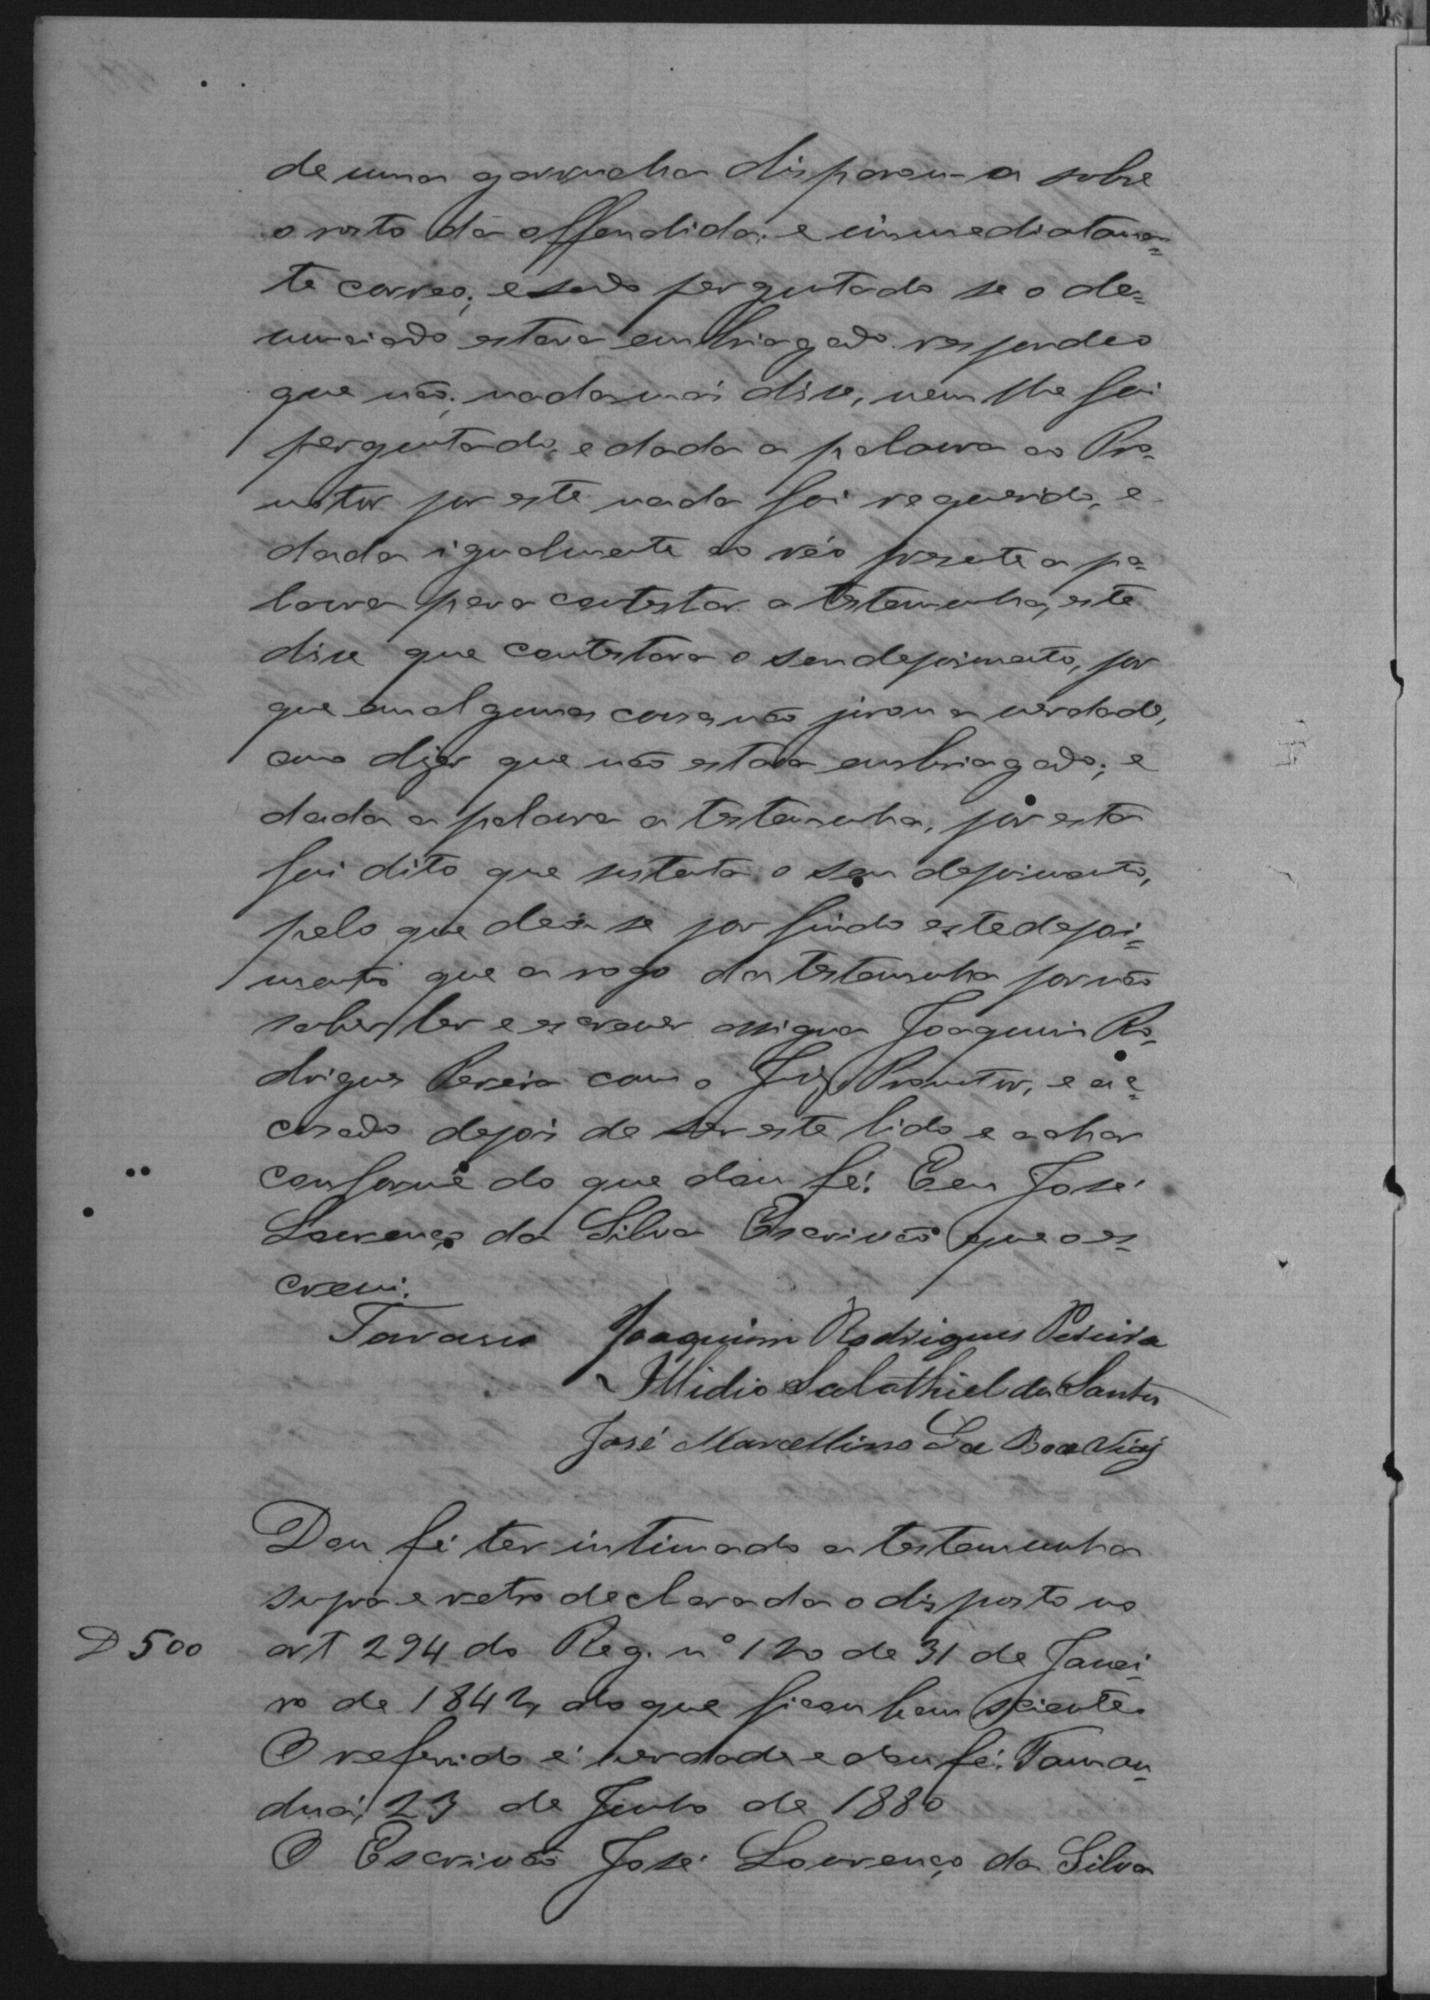 de uma garrucha disparou-a sobre
o rosto da offendida; e immediatamen=
te correo; e sendo perguntado se o de=
nunciado estava embriagado respondeo
que não; nada mais disse, nem lhe foi
perguntado, e dada a palavra ao Pro-
motor por este nada foi requerido, e
dada igualmente ao réo presente a pa=
lavra para contestar a testemunha, este
disse que contestava o seu depoimento, por
que em algumas cousas não jurou a verdade,
como dizer que não estava embriagado; e
dada a palavra a testemunha, por esta
foi dito que sustenta o seu depoimento,
pelo que deu se por findo este depoi=
mento que a rogo da testemunha por não
saber ler e escrever assigna Joaquim Ro-
drigues Pereira com o Juiz, Promotor, e ac=
cusado depois de ser este lido e achar
conforme do que dou fé. E eu José
Lourenço da Silva Escrivão que o es=
crevi.
Tavares Joaquim Rodrigues Pereira
Illidio Salathiel dos Santos
José Marcellino da Boa Viaj
Dou fé ter intimado a testemunha
supra e retro declarada o disposto no
D 500 art 294 do Reg. nº 120 de 31 de Janei=
ro de 1842, do que ficou bem sciente.
O referido é verdade e dou fé. Taman=
duá, 23 de Junho de 1880
O Escrivão José Lourenço da Silva